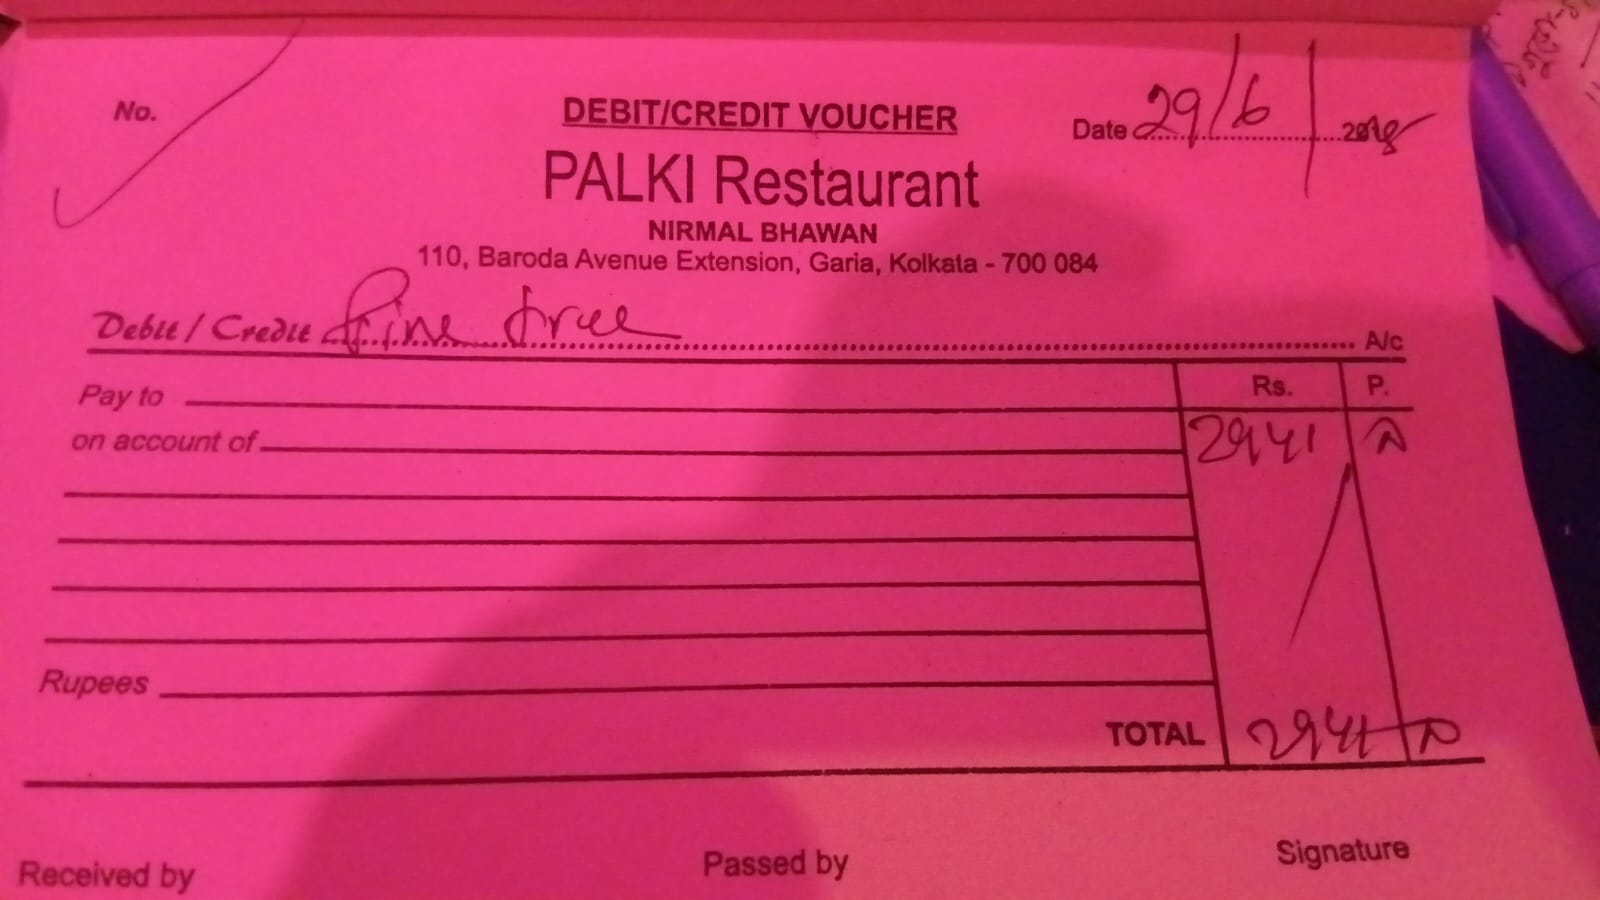 No.
DEBIT/CREDIT VOUCHER
Date 29/6/2018
PALKI Restaurant
NIRMAL BHAWAN
110, Baroda Avenue Extension, Garia, Kolkata - 700 084
Debit / Credit Pine tree A/c
Rs. P.
Pay to
on account of 2941
Rupees
TOTAL 2941
Received by Passed by Signature